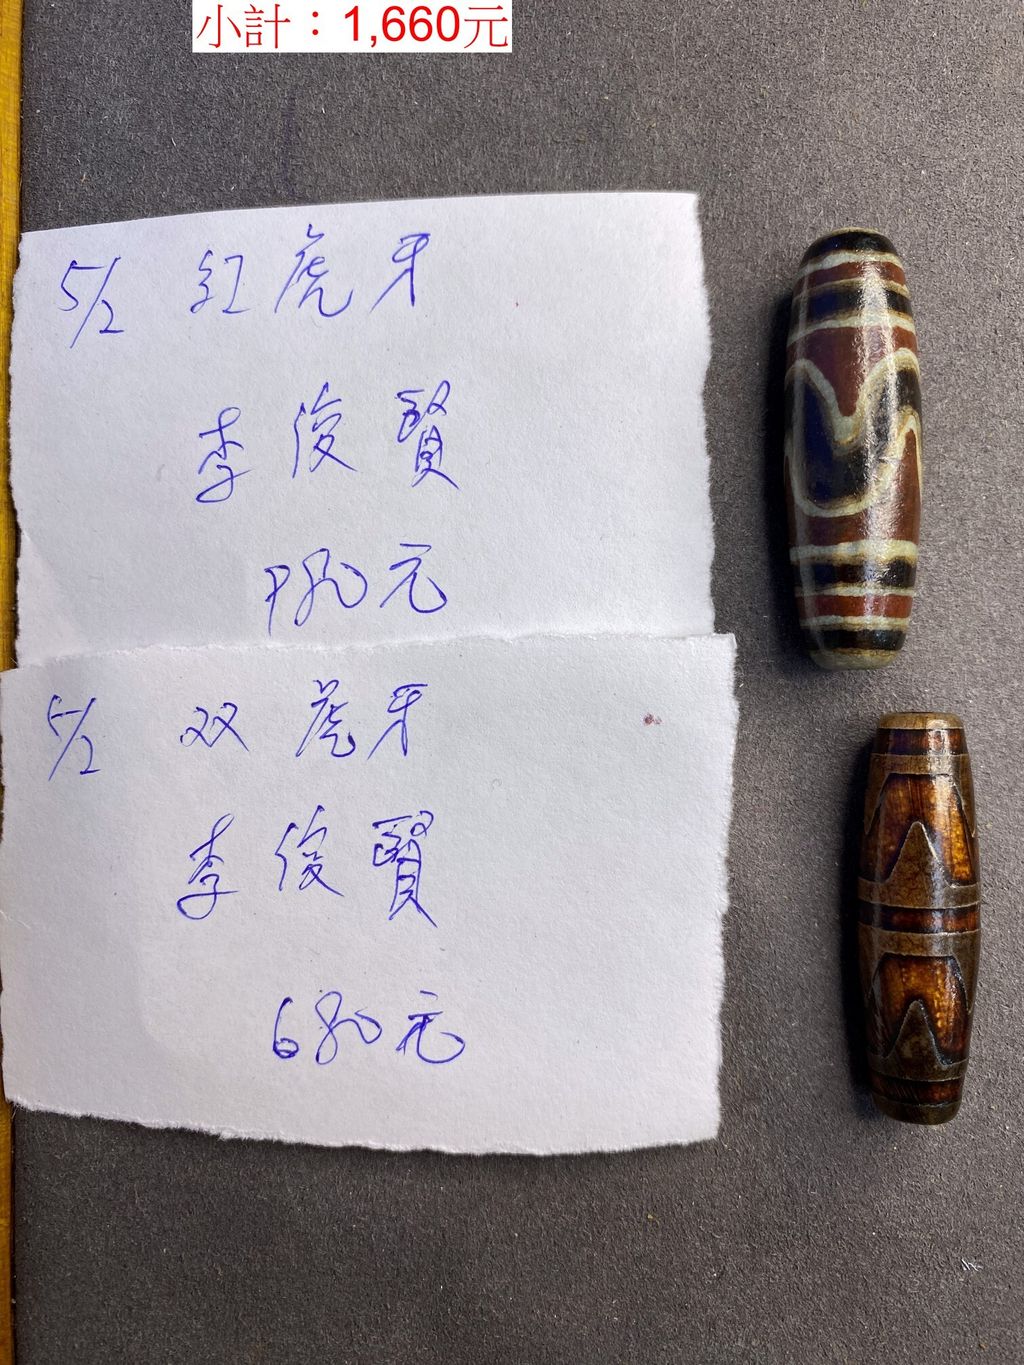 小計：1,660元
5/2 紅虎牙
李俊賢
980元
5/2 双虎牙
李俊賢
680元